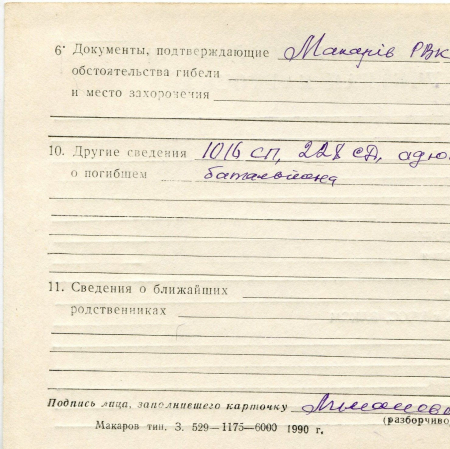 6. Документы, подтверждающие Макарів РВК
обстоятельства гибели
и место захоронения
10. Другие сведения 1016 сп, 228 сд, адю
о погибшем батальйона
11. Сведения о ближайших
родственниках
Подпись лица, заполнившего карточку Лиманова
(разборчиво
Макаров тип. З. 529—1175—6000 1990 г.